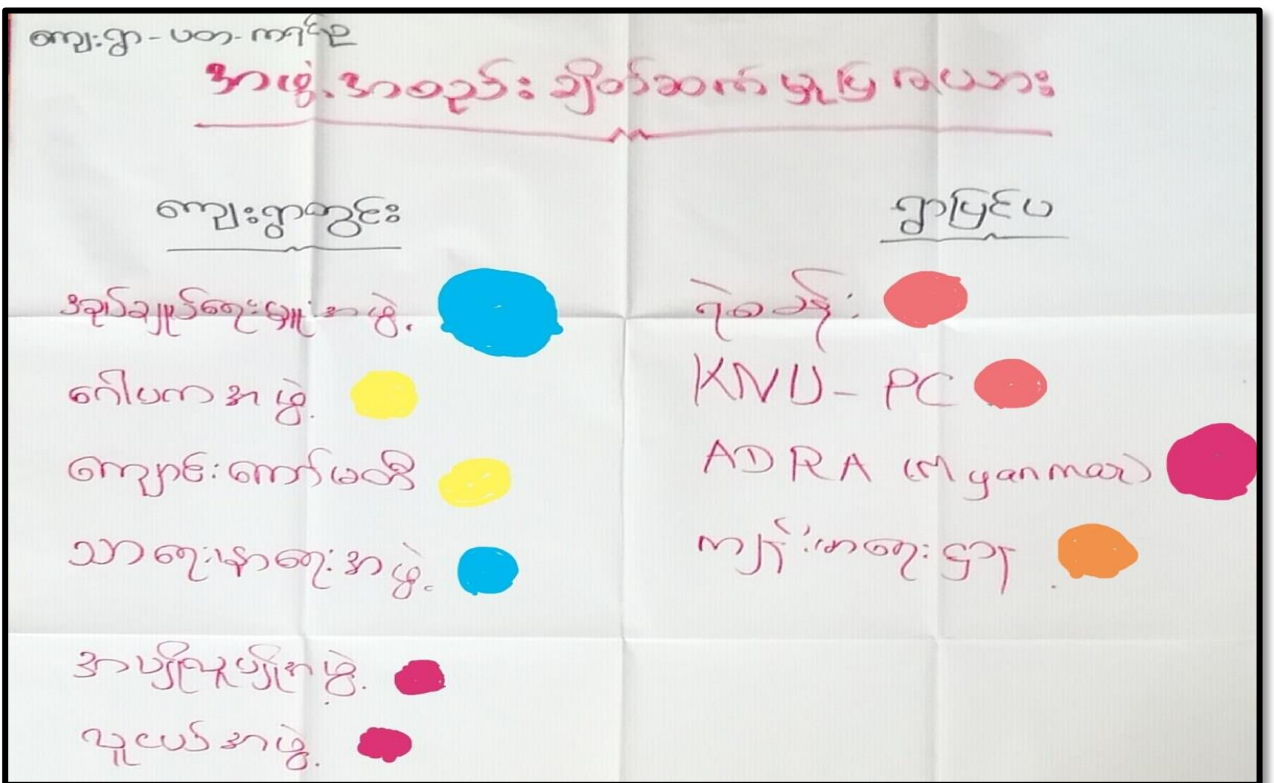 ကျေးရွာ - ပတ - ကရင်ဥ
အဖွဲ့အစည်း ချိတ်ဆက်မှုပြ ဇယား
ကျေးရွာတွင်း
အုပ်ချုပ်ရေးမှူးအဖွဲ့.
ဂေါပကအဖွဲ့.
ကျောင်းကော်မတီ
သာရေးနာရေးအဖွဲ့.
အပျိုလူပျိုအဖွဲ့.
လူငယ်အဖွဲ့.
ရွာပြင်ပ
ရဲစခန်း
KNU - PC
ADRA (Myanmar)
ကျန်းမာရေးဌာန